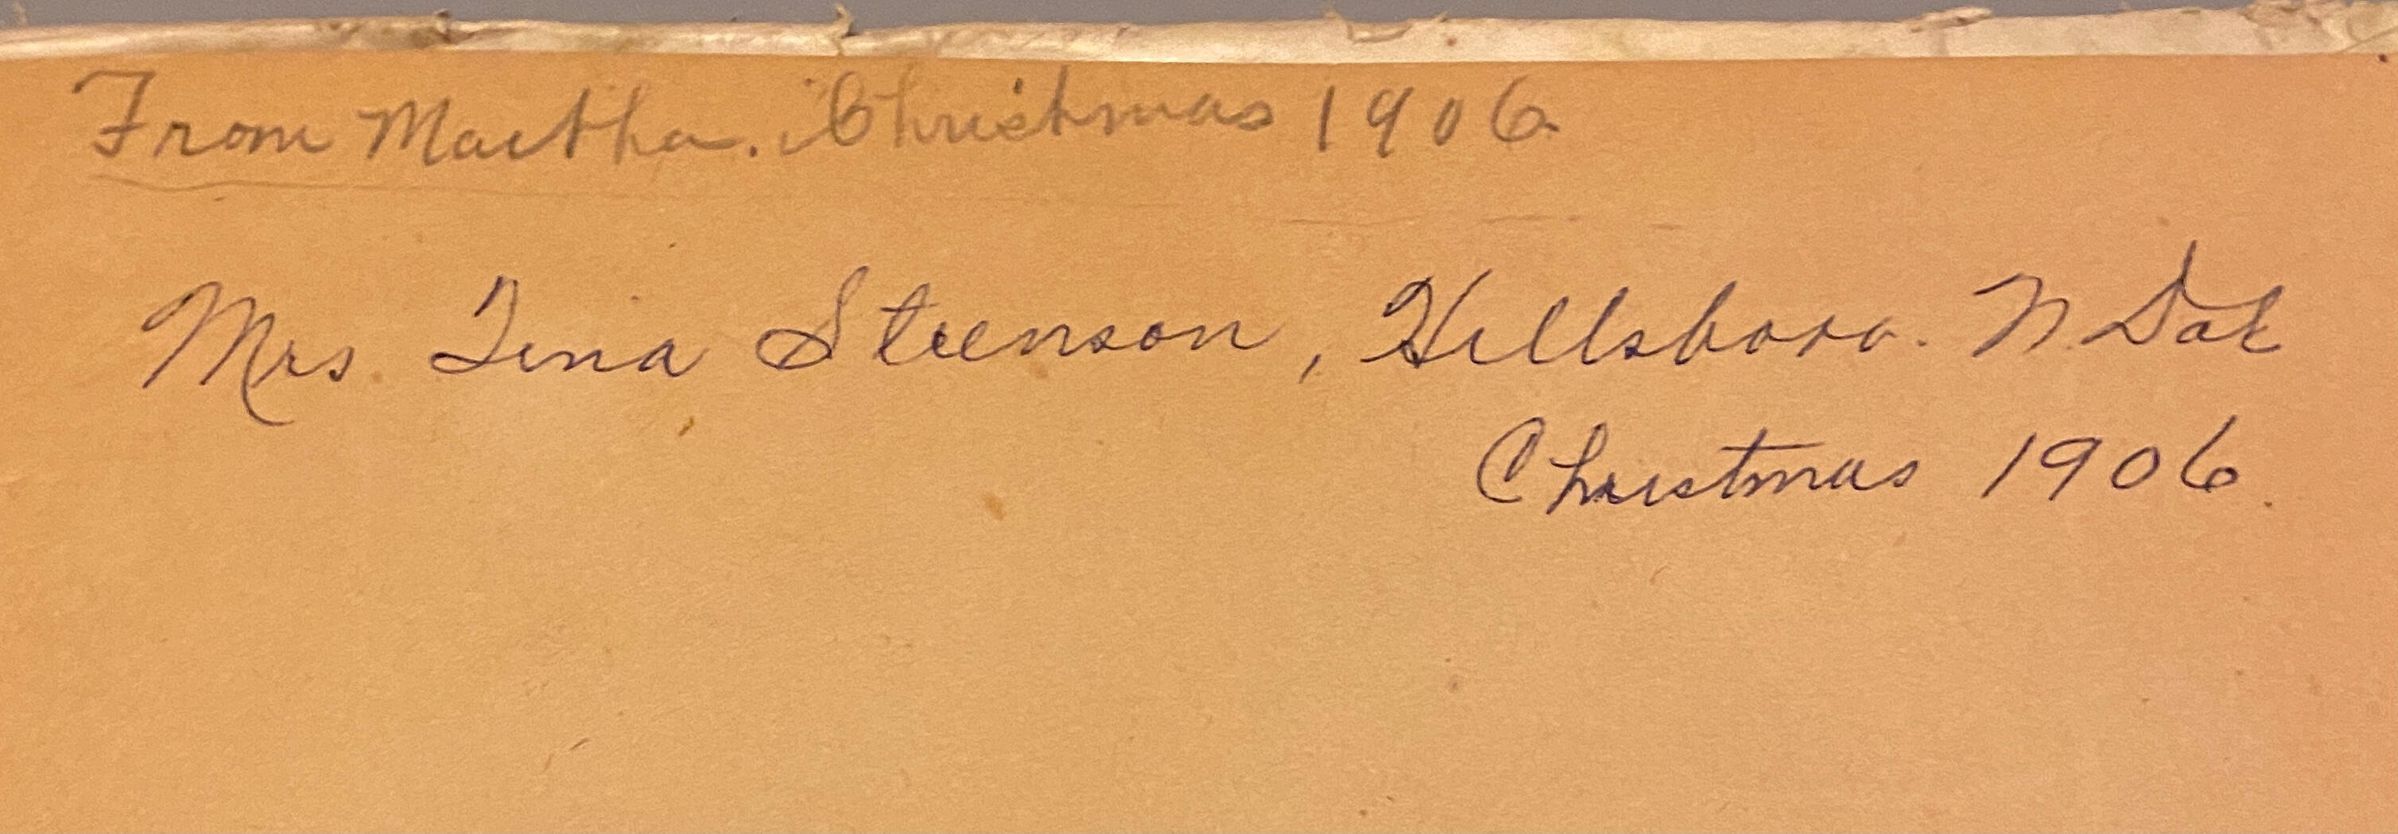 From Martha. Christmas 1906
Mrs. Tina Steenson, Hillsboro. N. Dak
Christmas 1906.